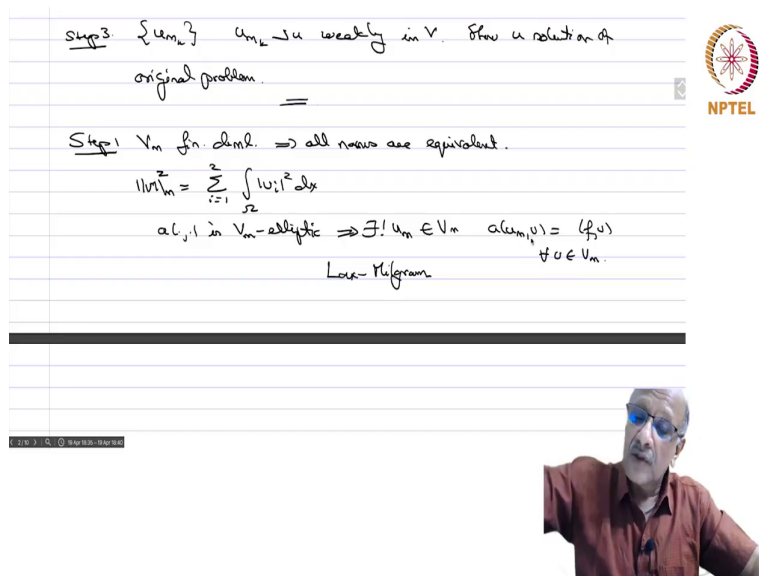 Step 3. {u_{m_k}} u_{m_k} ⇀ u weakly in V. Show u solution of
original problem.
NPTEL
Step 1 V_m fin. diml. ⇒ all norms are equivalent.
||v||²_m = Σ_{i=1}^{2} ∫_Ω |v_i|² dx
a(.,.) is V_m-elliptic ⇒ ∃! u_m ∈ V_m a(u_m, v) = (f, v)
∀ v ∈ V_m.
Lax-Milgram
2/10 19 Apr 18:26 - 19 Apr 18:40